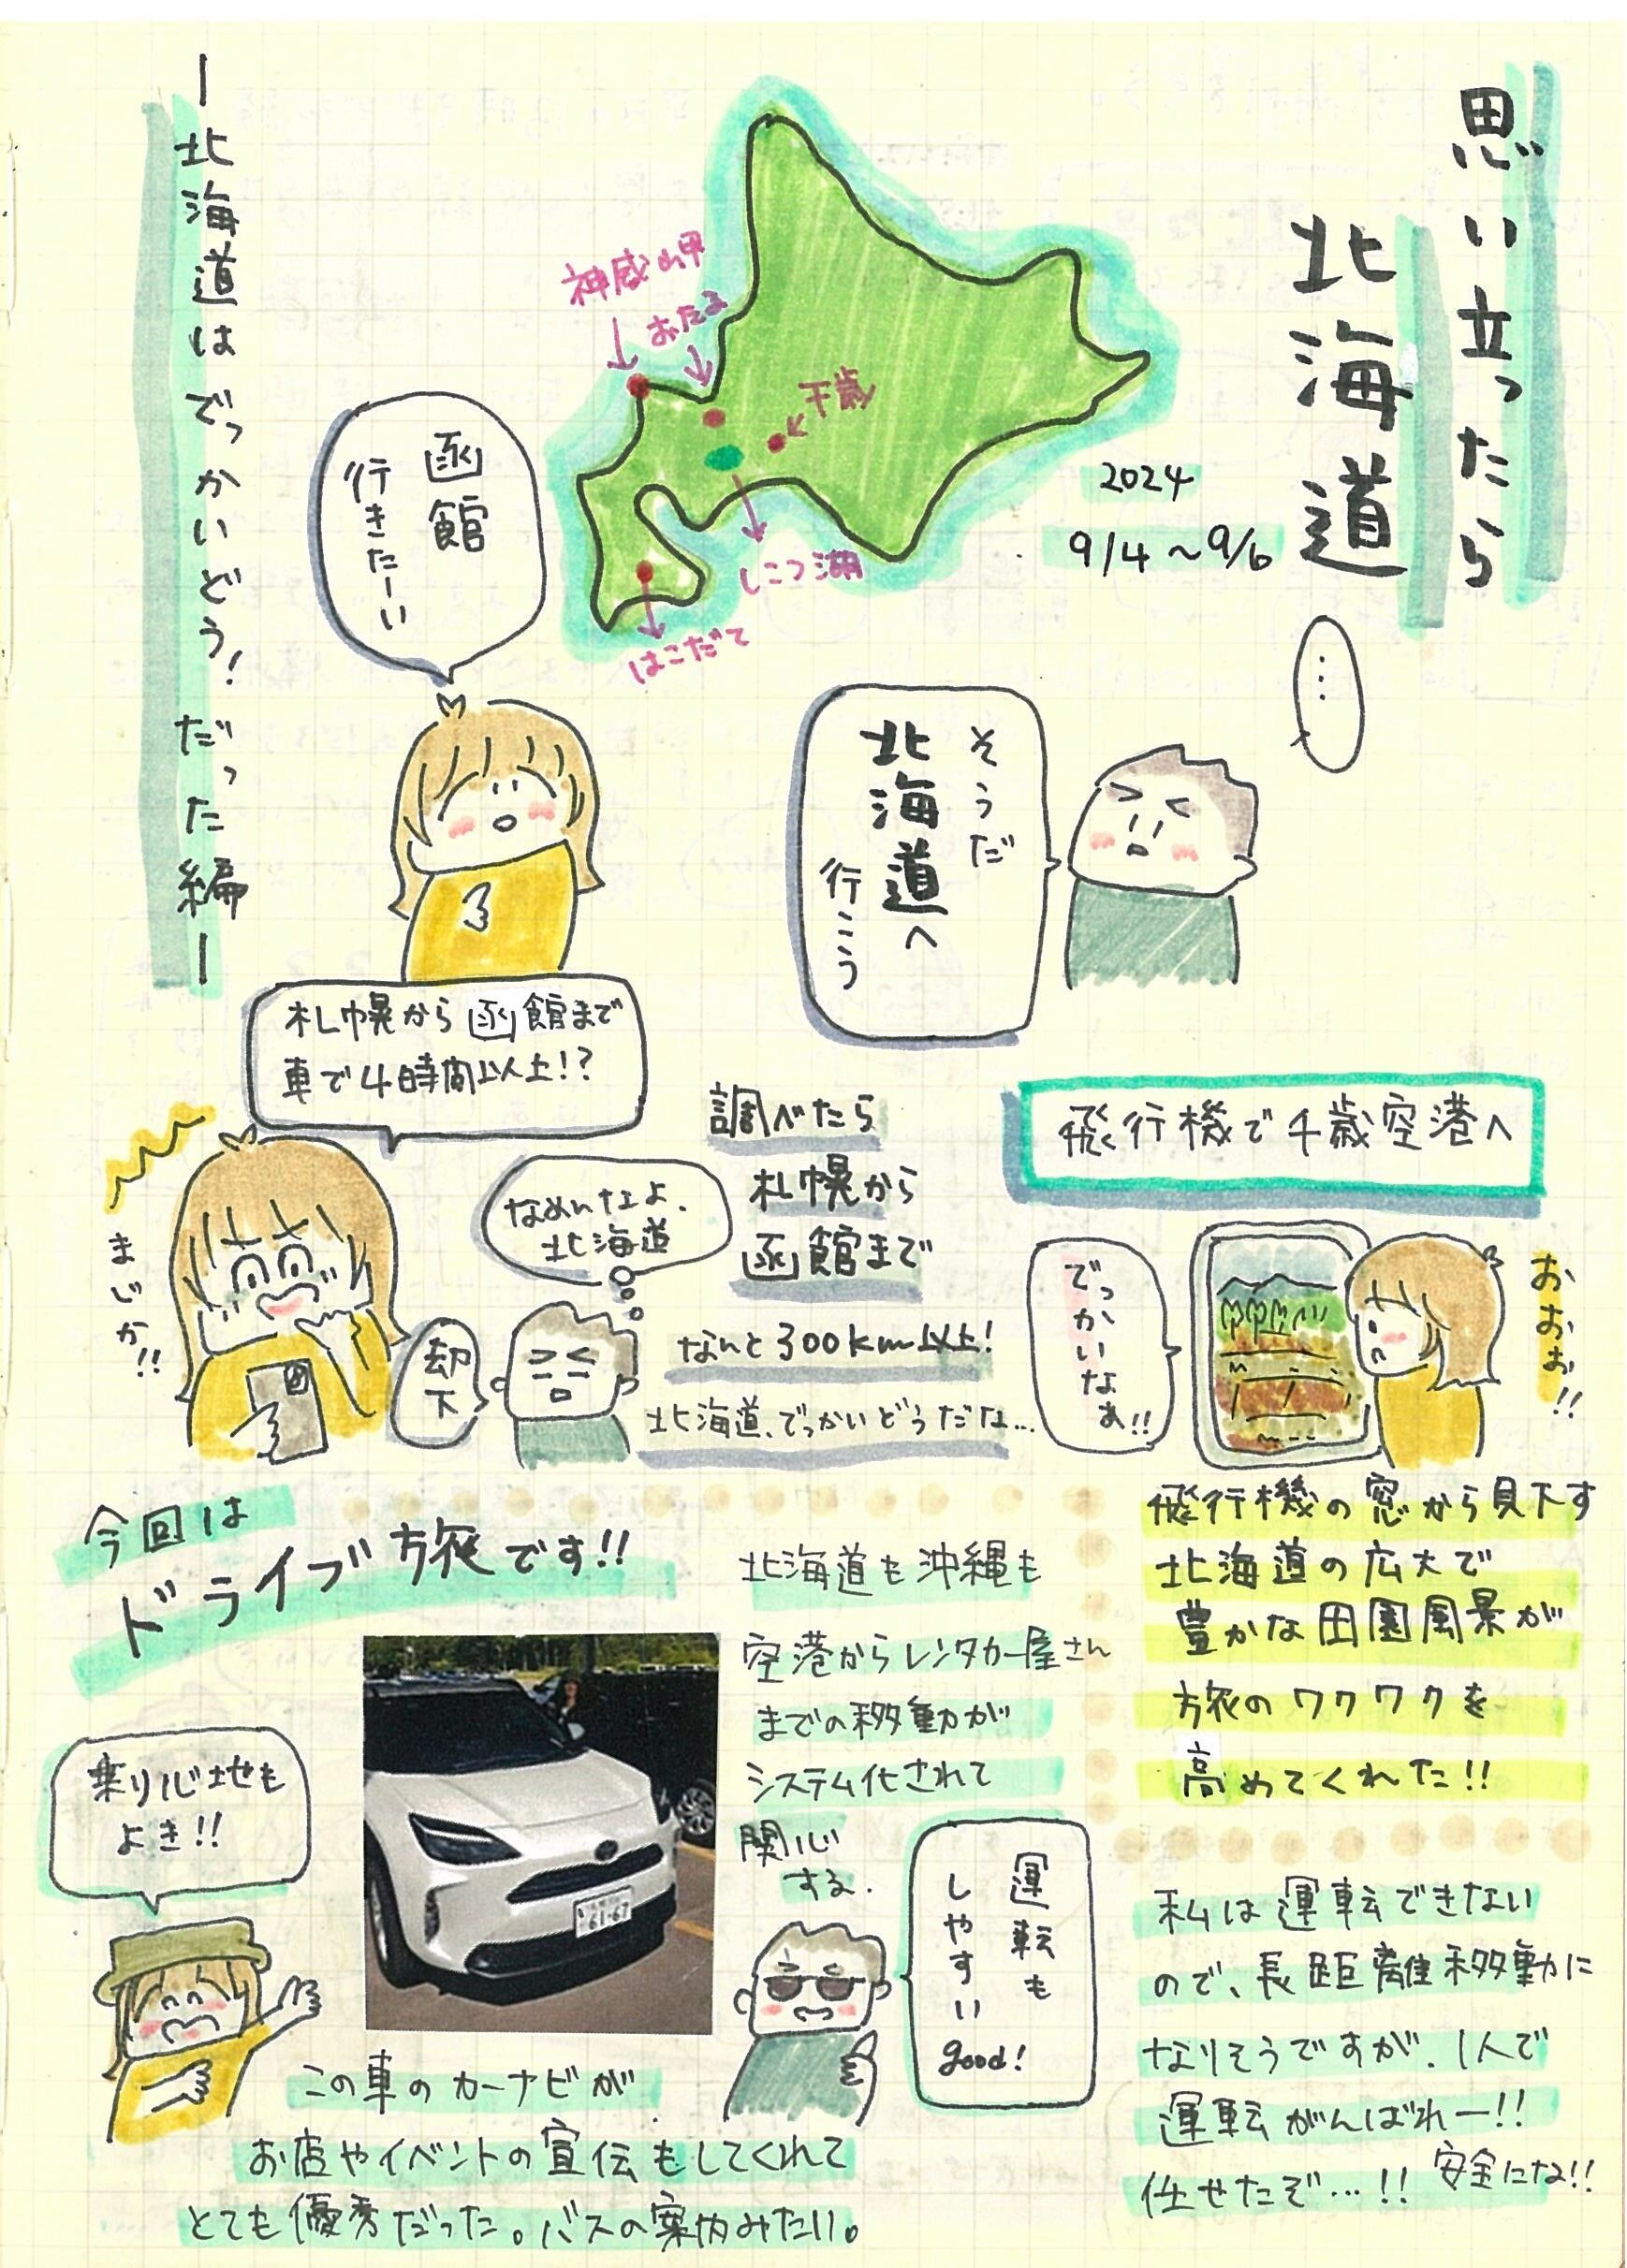 思い立ったら
北海道
2024
9/4～9/6
神威岬
おたる
千歳
しこつ湖
はこだて
ー北海道はでっかいどう！だった編ー
…
そうだ
北海道へ
行こう
函館
行きたーい
飛行機で千歳空港へ
おおお!!
でっかいなぁ!!
飛行機の窓から見下す
北海道の広大で
豊かな田園風景が
旅のワクワクを
高めてくれた!!
調べたら
札幌から
函館まで
なんと300km以上!
北海道、でっかいどうだな…
札幌から函館まで
車で4時間以上!?
まじか!!
なめんなよ、
北海道
却下
今回は
ドライブ旅です!!
北海道も沖縄も
空港からレンタカー屋さん
までの移動が
システム化されて
関心
する.
私は運転できない
ので、長距離移動に
なりそうですが、1人で
運転がんばれー!!
任せたぞ…!!
安全にな!!
運転も
しやすい
good!
乗り心地も
よき!!
61-67
この車のカーナビが
お店やイベントの宣伝もしてくれて
とても優秀だった。バスの案内みたい。